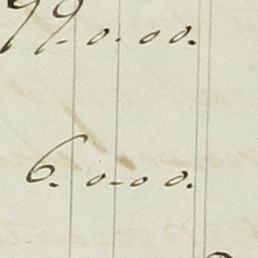 99.-0.-00.
6.-0-00.